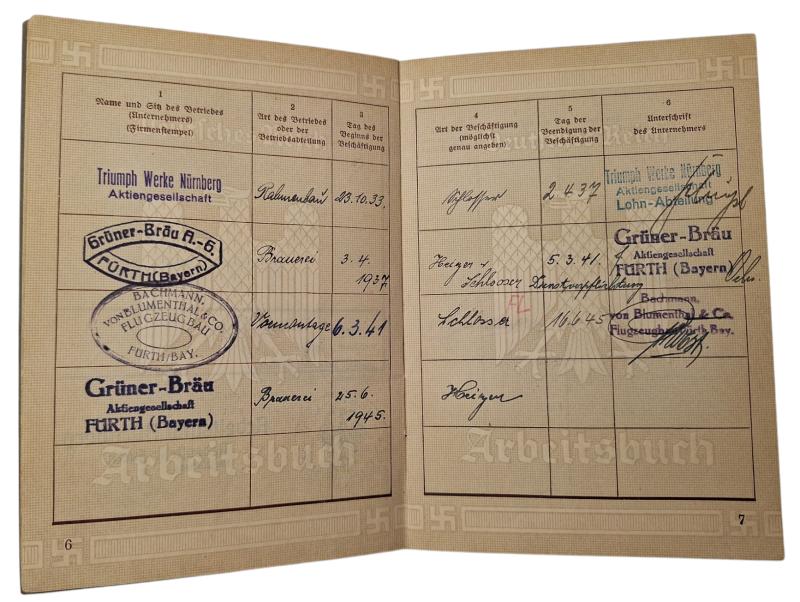 1
Name und Sitz des Betriebes
(Unternehmers)
(Firmenstempel)
2
Art des Betriebes
oder der
Betriebsabteilung
3
Tag des
Beginns der
Beschäftigung
Triumph Werke Nürnberg
Aktiengesellschaft
Rahmenbau
23.10.33.
Grüner-Bräu A.-G.
FÜRTH (Bayern)
Brauerei
3.4.
1937
BACHMANN,
VON BLUMENTHAL & CO.
FLUGZEUGBAU
FÜRTH/BAY.
Vormontage
6.3.41
Grüner-Bräu
Aktiengesellschaft
FÜRTH (Bayern)
Brauerei
25.6.
1945.
Arbeitsbuch
6
4
Art der Beschäftigung
(möglichst
genau angeben)
5
Tag der
Beendigung der
Beschäftigung
6
Unterschrift
des Unternehmers
Deutsches Reich
Schlosser
2.4.37
Triumph Werke Nürnberg
Aktiengesellschaft
Lohn-Abteilung
Heizer +
Schlosser
5.3.41.
Dienstverpflichtung
Grüner-Bräu
Aktiengesellschaft
FÜRTH (Bayern)
FL
Schlosser
16.6.45
Bachmann,
von Blumenthal & Co.
Flugzeugbau Fürth Bay.
Heizer
Arbeitsbuch
7